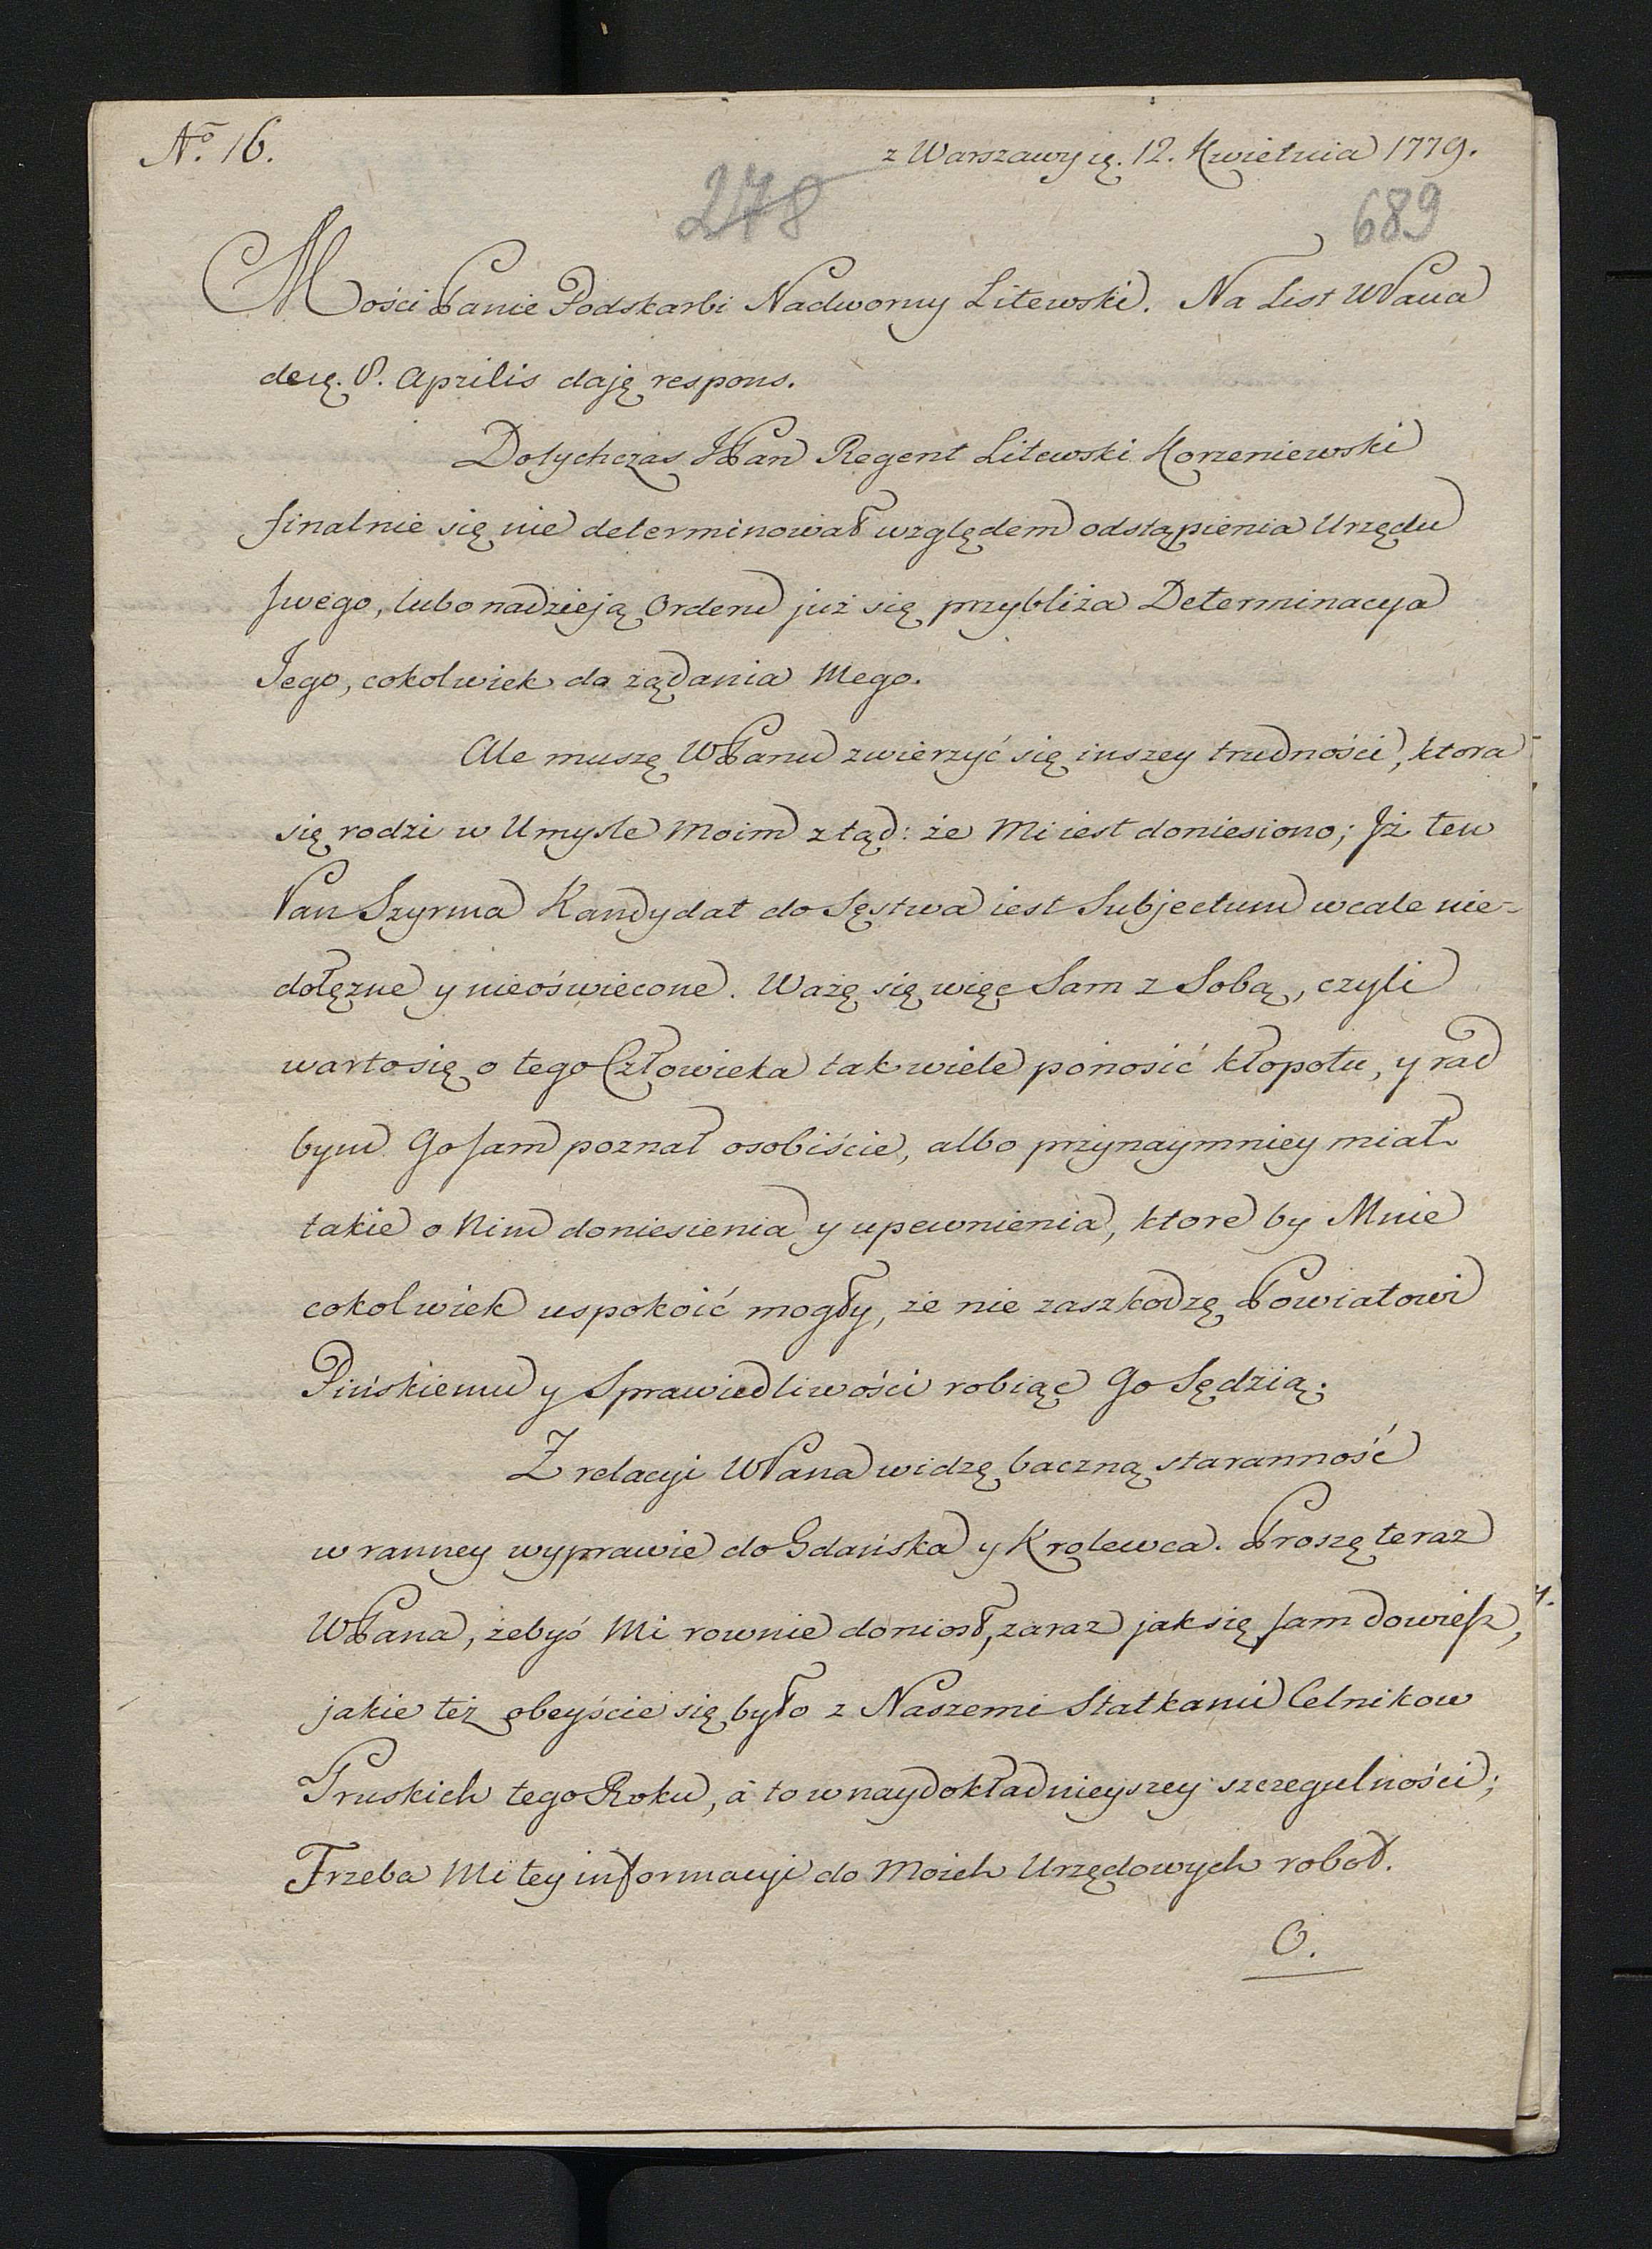 No. 16.
z Warszawy ię. 12. Kwietnia 1779.
278
689
Mości Panie Podskarbi Nadworny Litewski. Na List WPana
de ię. 8. Aprilis daję respons.
Dotychczas JPan Regent Litewski Korzeniewski
finalnie się nie determinował względem odstąpienia Urzędu
swego, lubo nadzieją Orderu już się przybliża Determinacya
Jego, cokolwiek do żądania Mego.
Ale muszę WPanu zwierzyć się inszey trudności, ktora
się rodzi w Umysle Moim ztąd: że Mi iest doniesiono; Jż ten
Pan Szyrma Kandydat do Sęstwa iest Subjectum wcale nie-
dołężne y nieoświecone. Ważę się więc Sam z Sobą, czyli
warto się o tego Człowieka tak wiele ponosić kłopotu, y rad
bym Go sam poznał osobiście, albo przynaymniey miał
takie o Nim doniesienia y upewnienia, ktore by Mnie
cokolwiek uspokoić mogły, że nie zaszkodzę Powiatowi
Pińskiemu y Sprawiedliwości robiąc Go Sędzią.
Z relacyi WPana widzę baczną staranność
w ranney wyprawie do Gdańska y Krolewca. Proszę teraz
WPana, żebyś Mi rownie doniosł, zaraz jak się sam dowiesz,
jakie też obeyście się było z Naszemi Statkami Celnikow
Pruskich tego Roku, a to w naydokładnieyszey szczegulności;
Trzeba Mi tey informacyi do Moich Urzędowych robot.
O.